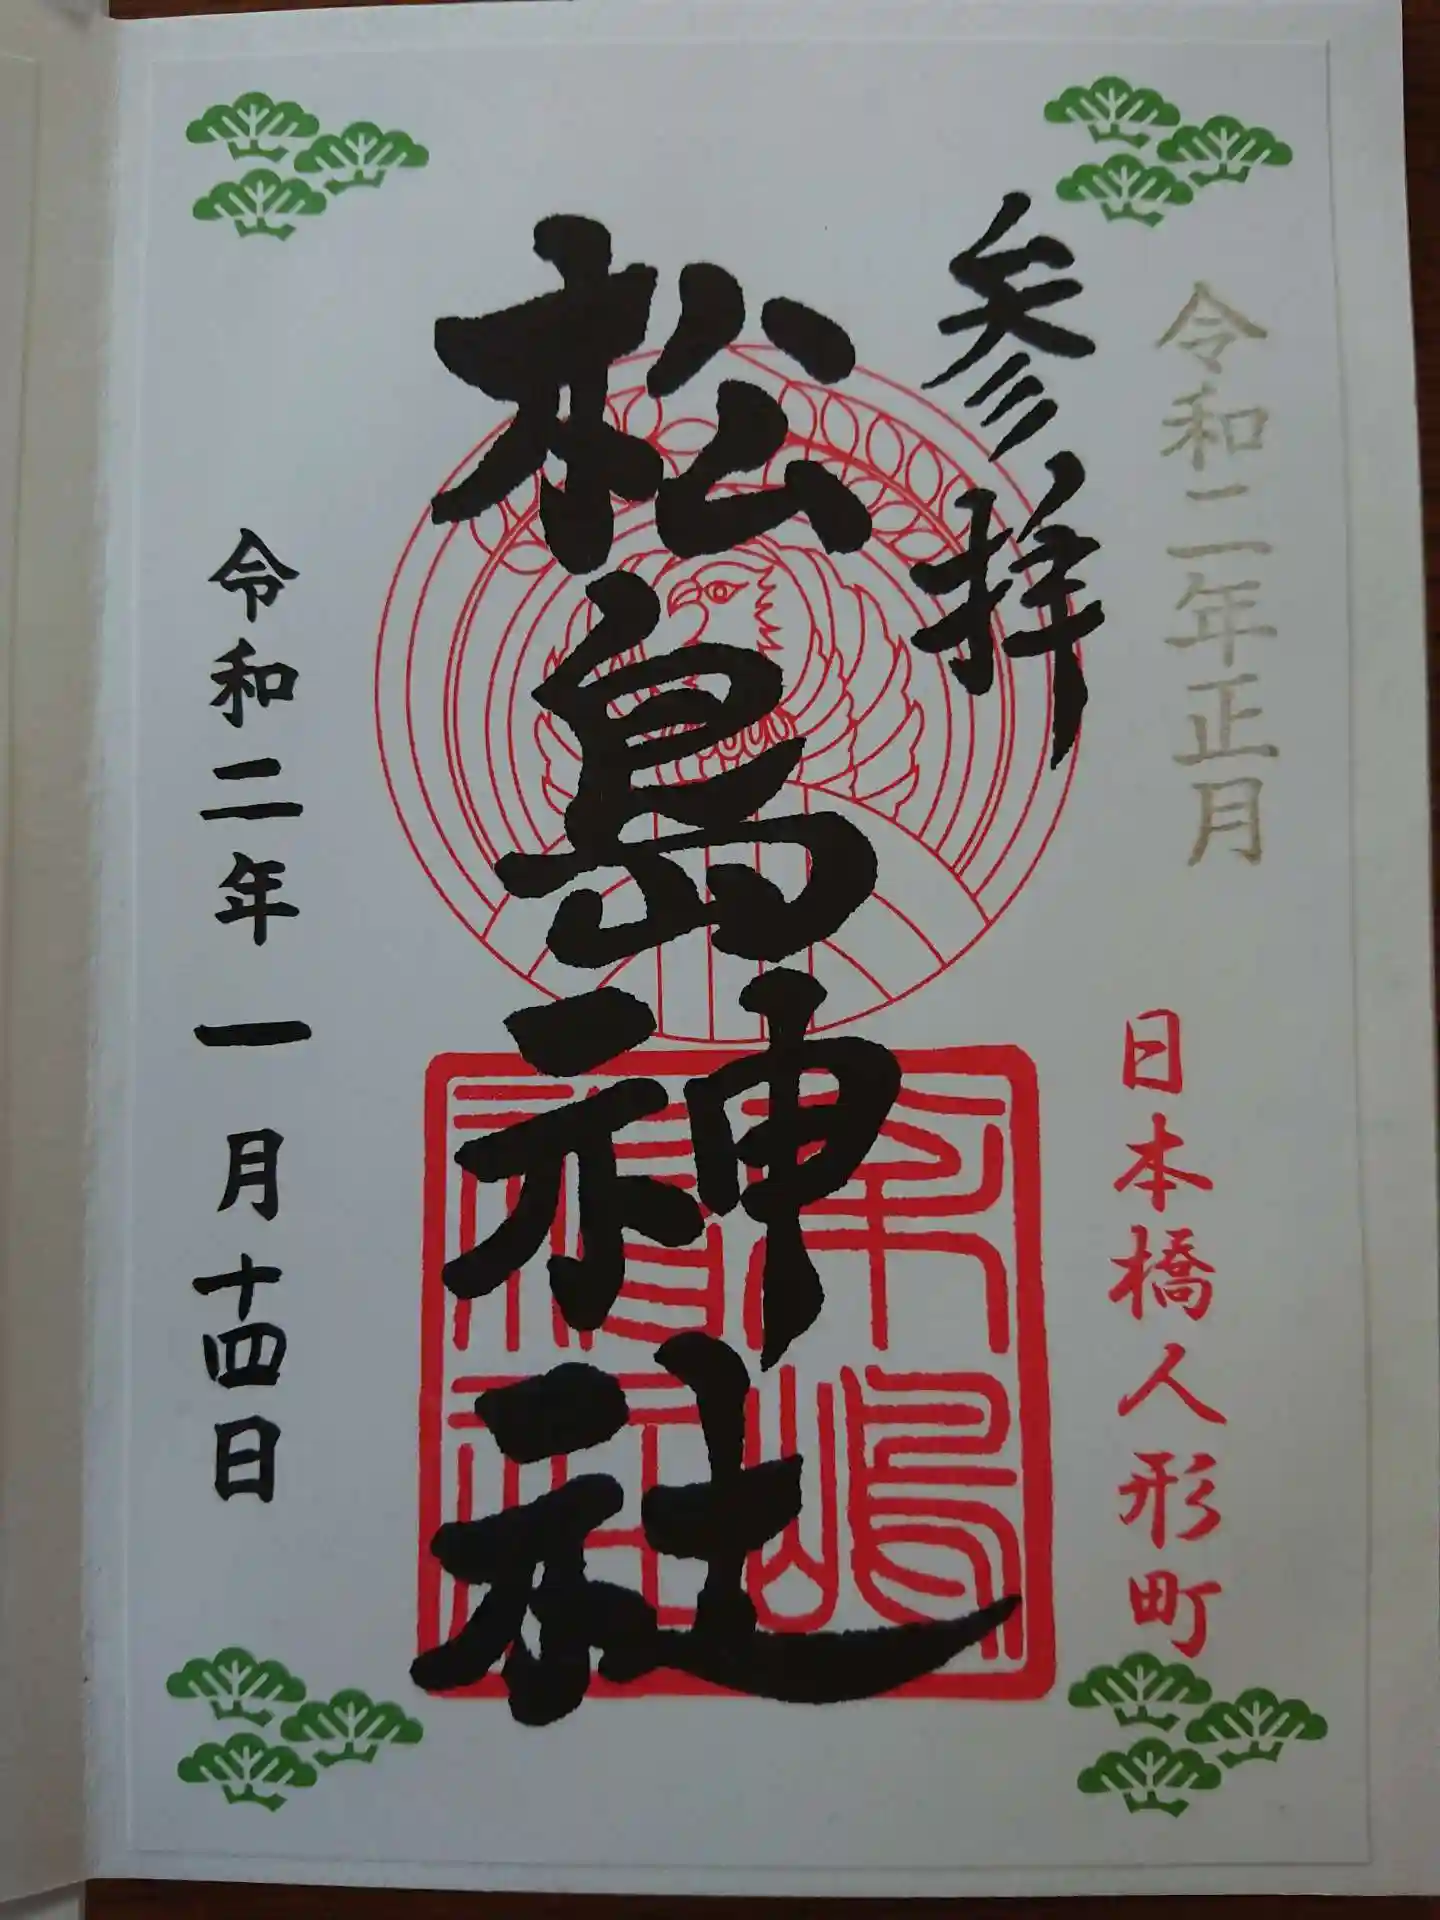 令和二年正月
日本橋人形町
参拝
松島神社
令和二年一月十四日